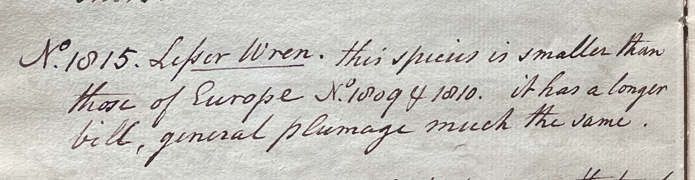 No. 1815. Lesser Wren. this species is smaller than
those of Europe No. 1809 & 1810. it has a longer
bill, general plumage much the same.